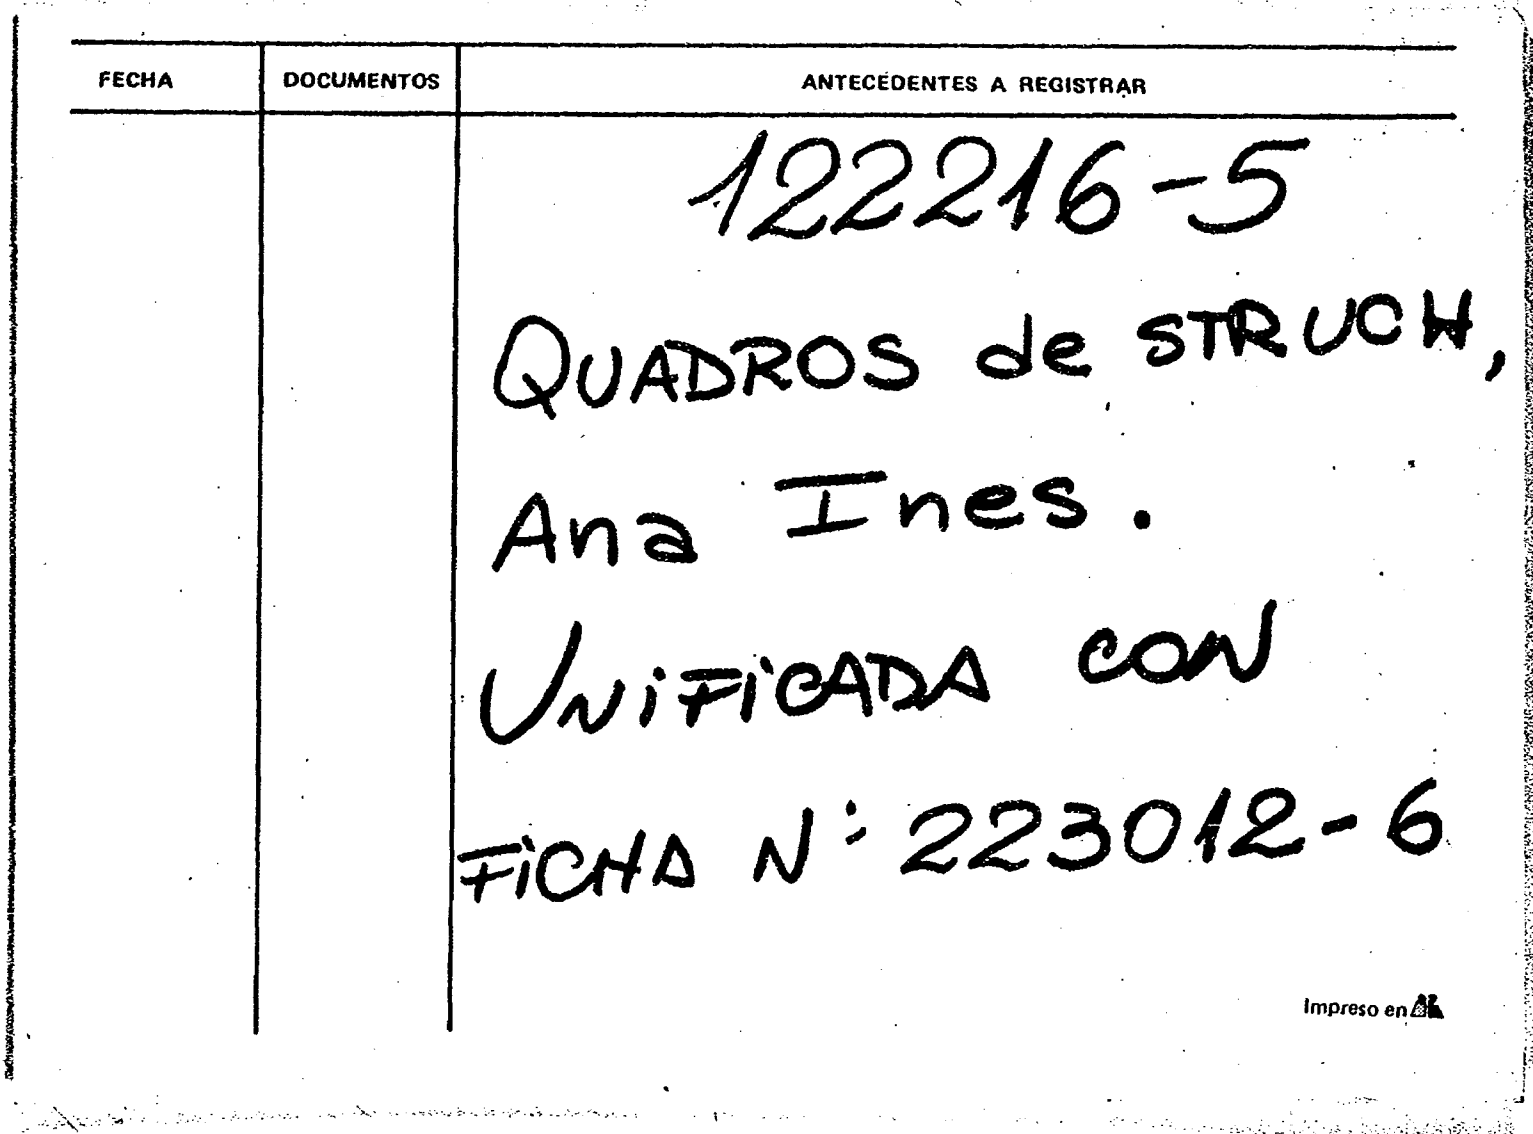 FECHA DOCUMENTOS ANTECEDENTES A REGISTRAR
122216-5
QUADROS de STRUCH,
Ana Ines.
UNiFiCADA CON
FiCHA Nº 223012-6
Impreso en